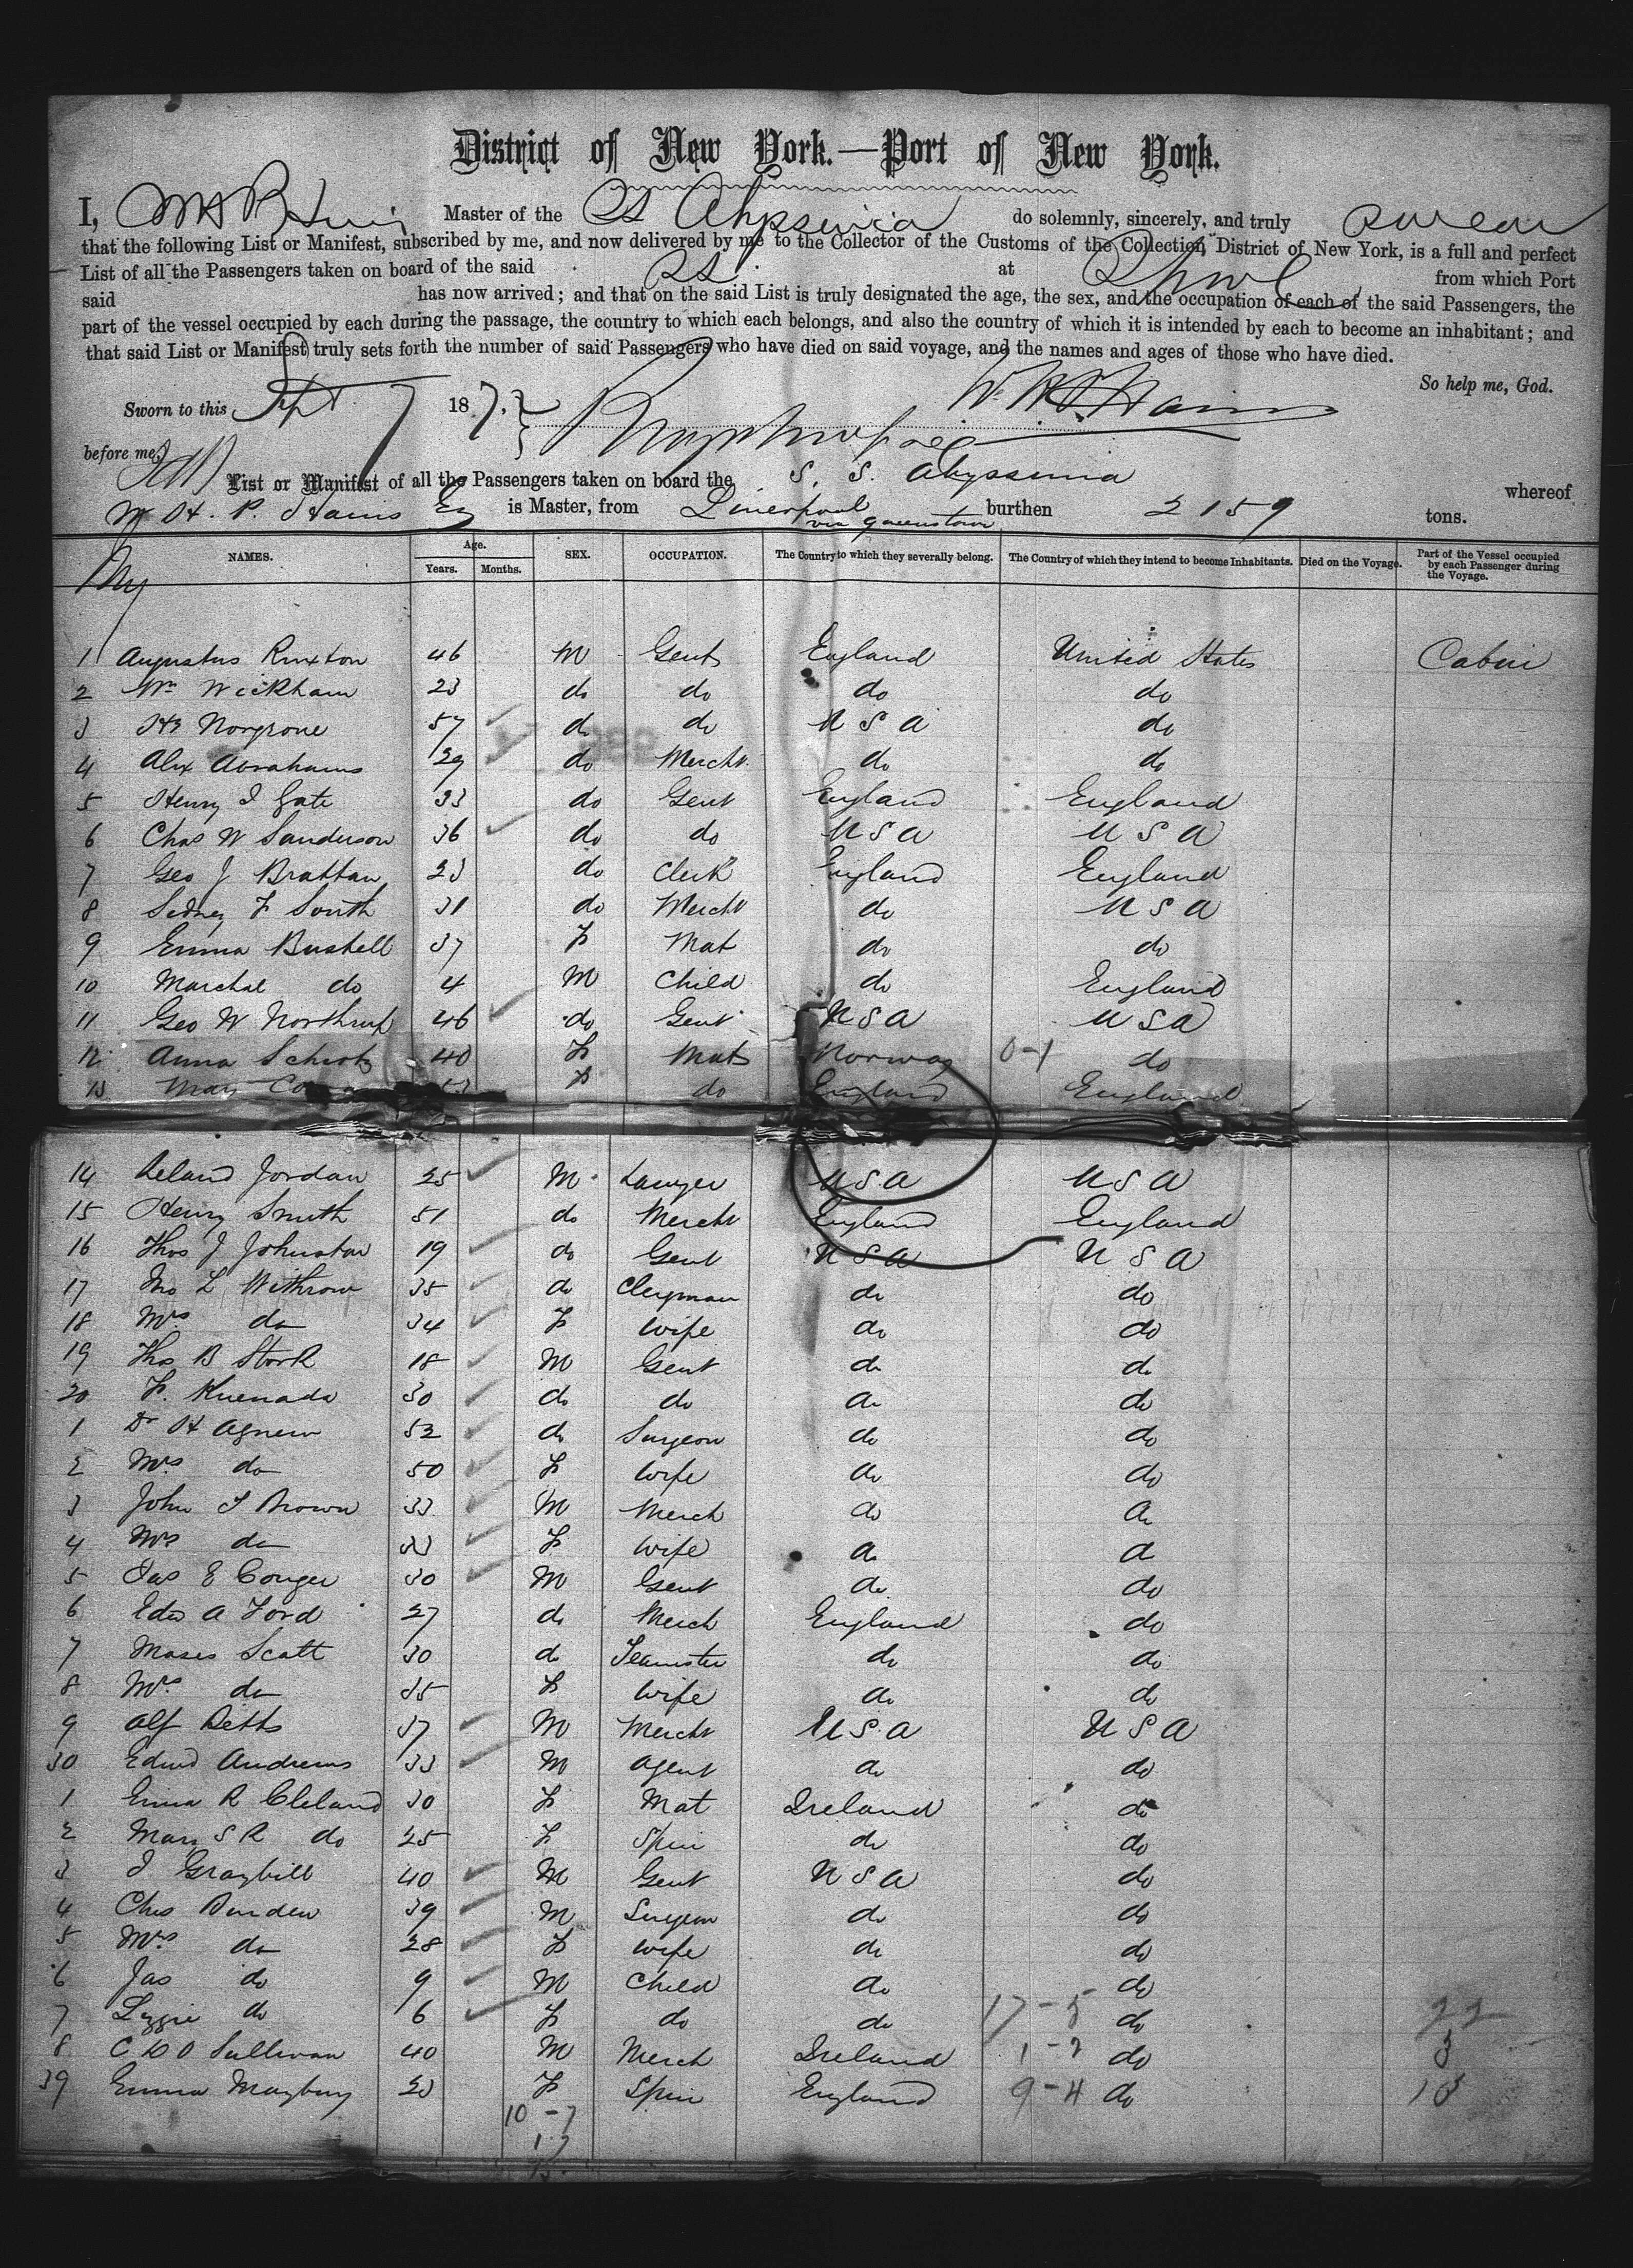 District of New York.—Port of New York.
I, Master of the SS Abyssinia do solemnly, sincerely, and truly swear
that the following List or Manifest, subscribed by me, and now delivered by me to the Collector of the Customs of the Collection District of New York, is a full and perfect
List of all the Passengers taken on board of the said SS at Lpool from which Port
said has now arrived; and that on the said List is truly designated the age, the sex, and the occupation of each of the said Passengers, the
part of the vessel occupied by each during the passage, the country to which each belongs, and also the country of which it is intended by each to become an inhabitant; and
that said List or Manifest truly sets forth the number of said Passengers who have died on said voyage, and the names and ages of those who have died.
So help me, God.
Sworn to this Sept 7 187
before me,
List or Manifest of all the Passengers taken on board the S. S. Abyssinia whereof
W H. P. Hains Esq is Master, from Liverpool via Queenstown burthen 2159 tons.
NAMES. Age. Years. Months. SEX. OCCUPATION. The Country to which they severally belong. The Country of which they intend to become Inhabitants. Died on the Voyage. Part of the Vessel occupied by each Passenger during the Voyage.
1 Augustus Ruxton 46 M Gent England United States Cabin
2 Wm Wickham 23 do do do do
3 Hy Norgrove 57 do do U S A do
4 Alex Abrahams 29 do Mercht do do
5 Henry I Gate 33 do Gent England England
6 Chas W Sanderson 36 do do U S A U S A
7 Geo J Brattan 23 do Clerk England England
8 Sidney F South 31 do Mercht do U S A
9 Emma Bushell 37 F Mat do do
10 Marchal do 4 M Child do England
11 Geo W Northrup 46 do Gent U S A U S A
12 Anna Schiotz 40 F Mat Norway 0-1 do
13 Mary F do England England
14 Leland Jordan 25 M Lawyer U S A U S A
15 Henry Smith 51 do Mercht England England
16 Thos J Johnston 19 do Gent U S A U S A
17 Jno L Withrow 35 do Clergman do do
18 Mrs do 34 F Wife do do
19 Thos B Stork 18 M Gent do do
20 F. Kuenada 30 do do do do
1 Dr H Agnew 52 do Surgeon do do
2 Mrs do 50 F Wife do do
3 John T Brown 33 M Merch do do
4 Mrs do 33 F Wife do do
5 Jas E Conger 30 M Gent do do
6 Edw A Ford 27 do Merch England do
7 Moses Scott 30 do Teamster do do
8 Mrs do 35 F Wife do do
9 Alf Betts 37 M Mercht U S A U S A
30 Edwd Andrews 33 M Agent do do
1 Emma R Cleland 30 F Mat Ireland do
2 Mary S R do 25 F Spin do do
3 J Graybill 40 M Gent U S A do
4 Chas Burden 39 M Surgeon do do
5 Mrs do 28 F Wife do do
6 Jas do 9 M Child do do
7 Lizzie do 6 F do do 17-5 do 22
8 C O Sullivan 40 M Merch Ireland 1-2 do 3
39 Emma Maybury 23 F Spin England 9-4 do 13
10-7